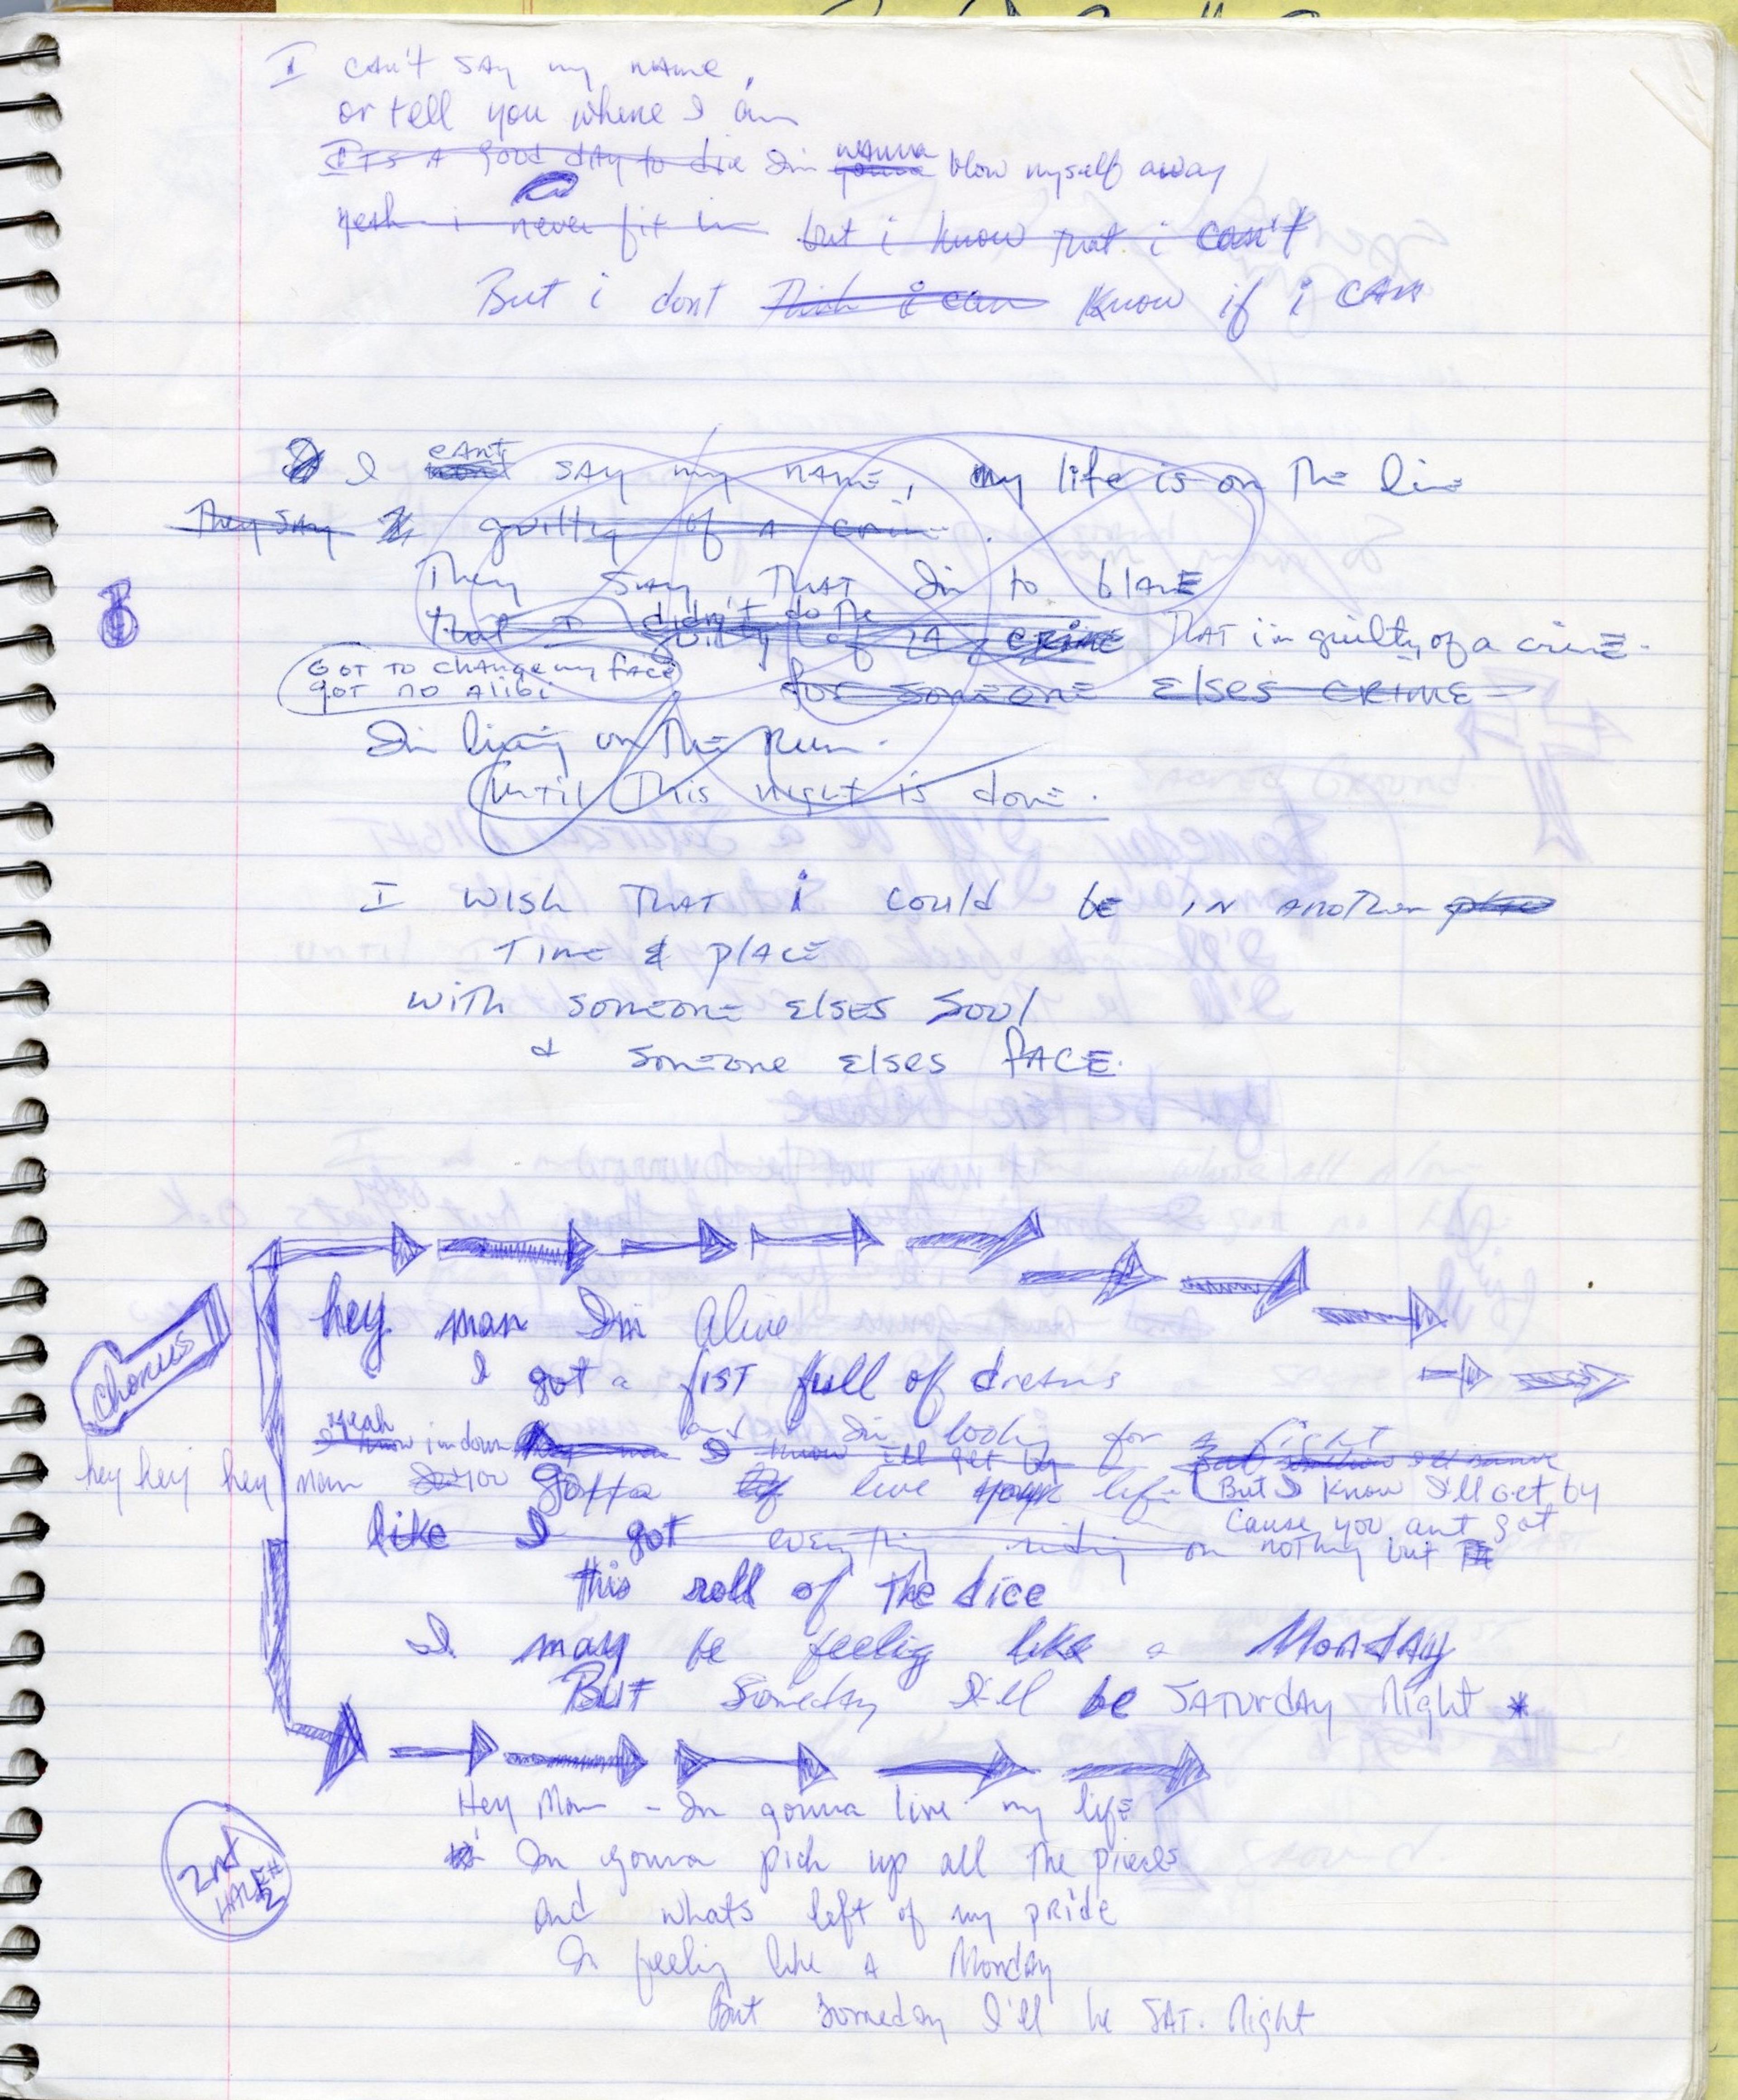 I can't say my name,
or tell you where I am
It's a good day to die I'm gonna wanna blow myself away
yeah i never fit in but i know that i can't
But i dont think i can know if i can
I can't say my name, my life is on the line
They say guilty of a crime.
They say that I'm to blame
that I didn't do the
guilty of a crime that i'm guilty of a crime.
Got to change my face
got no alibi
for someone elses crime
I'm living on the run.
Until this night is done.
I wish that i could be in another place
time & place
with someone elses soul
& someone elses face.
Chorus
hey man I'm alive
I got a fist full of dreams
yeah
I know i'm down and I'm looking for a fight
hey man I know I'll get by
hey hey hey man you gotta live your life But I know I'll get by
Cause you aint got
like I got everything riding on nothing but
this roll of the dice
I may be feeling like a Monday
But Someday I'll be Saturday Night *
Hey Man - I'm gonna live my life
2nd
HALF
I'm gonna pick up all the pieces
and whats left of my pride
I'm feeling like a Monday
But Someday I'll be Sat. Night